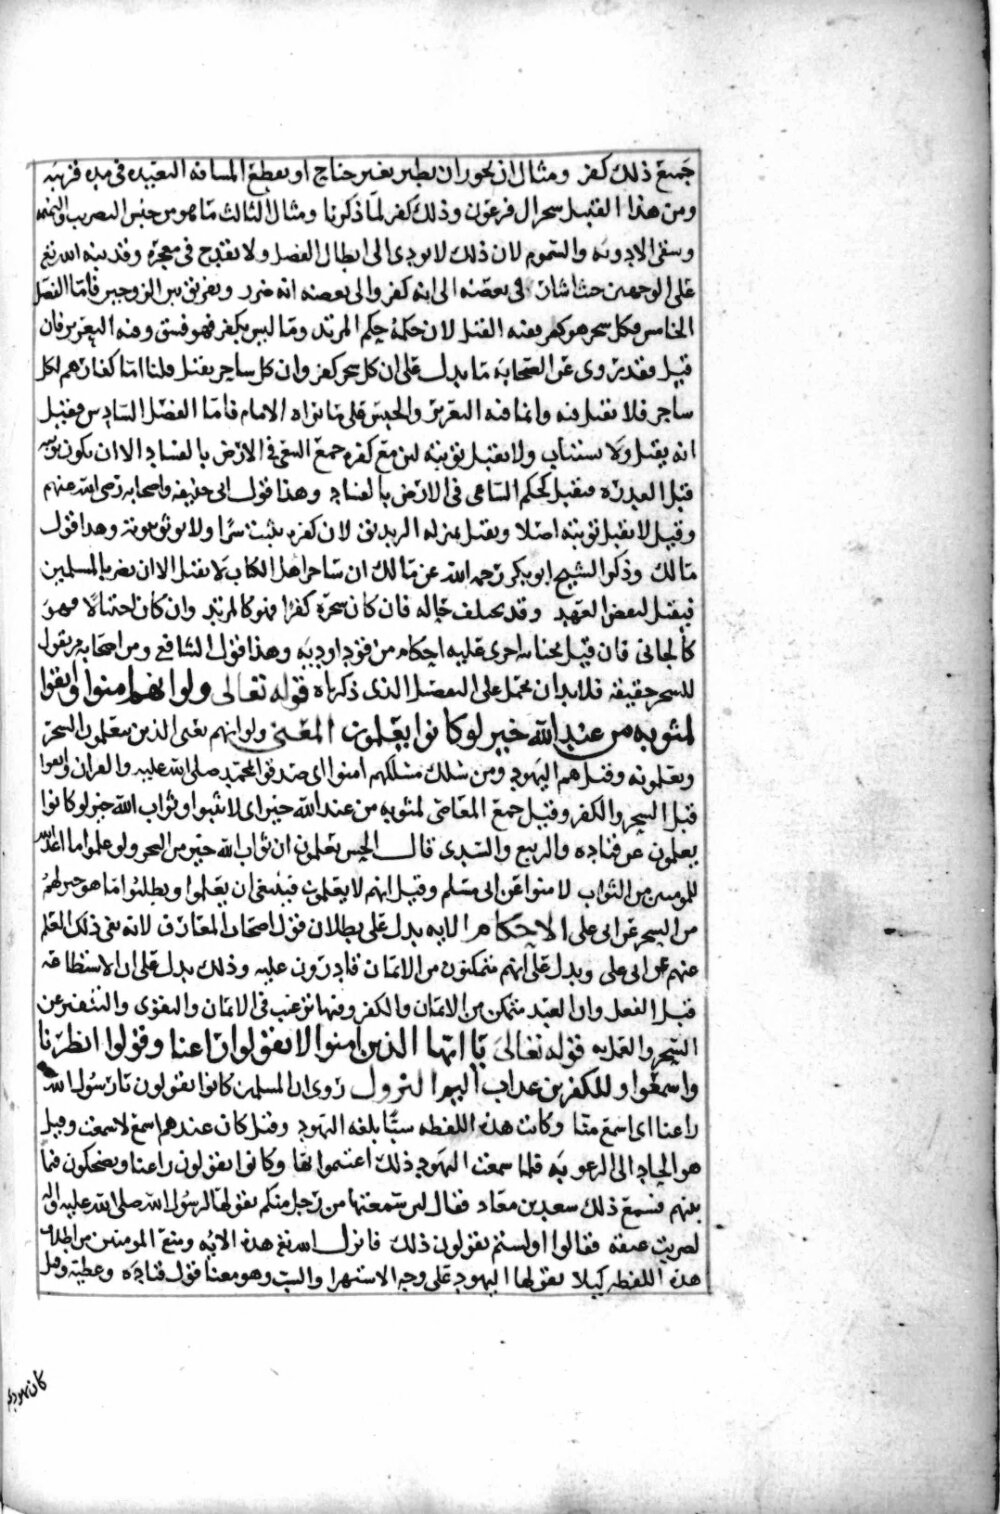 جميع ذلك كفر ومثال ان يجوز ان يطير بغير جناح او يقطع المسافة البعيدة في مدة قريبة
ومن هذا القبيل سحر ال فرعون وذلك كفر لما ذكرنا ومثال الثالث ما هو من جنس الضريب والنميمة
وسقي الادوية والسموم لان ذلك لا يودي الى ابطال الفضل ولا يقدح في معجزة وقد نبه الله تع
على الوجهين حيث اشار في بعضه الى انه كفر والى بعضه انه ضرر وتفريق بين الزوجين فاما الفصل
الخامس فكل سحر هو كفر ففيه القتل لان حكمه حكم المرتد وما ليس بكفر فهو فسق وفيه التعزير فان
قيل فقد روى عن الصحابة ما يدل على ان كل سحر كفر وان كل ساحر يقتل قلنا اما كفارهم لكل
ساحر فلا نقبل فيه وانما فيه التعزير والحبس على ما يراه الامام فاما الفصل السادس فقيل
انه يقتل ولا يستتاب ولا يقبل توبته لان مع كفره جمع السعي في الارض بالفساد الا ان يكون توبته
قبل القدرة فيقبل كحكم الساعي في الارض بالفساد وهذا قول ابى حنيفه واصحابه رضى الله عنهم
وقيل لا يقبل توبته اصلا ويقتل بمنزلة الزنديق لان كفره يثبت سرا ولا يوثق بتوبته وهذا قول
مالك وذكر الشيخ ابو بكر رحمه الله عن مالك ان ساحر اهل الكتاب لا يقتل الا ان يضر بالمسلمين
فيقتل لنقض العهد وقد يختلف حاله فان كان سحره كفرا فهو كالمرتد وان كان احتيالا فهو
كالجاني فان قتل بجنايته اجرى عليه احكامه من قود او دية وهذا قول الشافعي ومن اصحابه من يقول
للسحر حقيقه فلا بد ان يحمل على التفصيل الذي ذكرناه قوله تعالى ولو انهم امنوا واتقوا
لمثوبه من عند الله خير لو كانوا يعلمون المعنى ولو انهم يعنى الذين يتعلمون السحر
ويعلمونه وقيل هم اليهود ومن سلك مسلكهم امنوا اى صدقوا بمحمد صلى الله عليه والقران واتقوا
قيل السحر والكفر وقيل جميع المعاصى لمثوبه من عند الله خير اى لاثيبوا وثواب الله خير لو كانوا
يعلمون عن قتاده والربيع والسدى قال الحسن يعلمون ان ثواب الله خير من السحر ولو علموا ما اعد الله
للمومنين من الثواب لامنوا عن ابى مسلم وقيل انهم لا يعلمون فينبغى ان يعلموا ويطلبوا ما هو خير لهم
من السحر عن ابى على الاحكام الايه يدل على بطلان قول اصحاب المعارف لانه نفى ذلك العلم
عنهم عن ابى على ويدل على انهم متمكنون من الايمان قادرون عليه وذلك يدل على ان الاستطاعه
قبل الفعل وان العبد متمكن من الايمان والكفر وفيها ترغيب في الايمان والتقوى والتنفير عن
السحر والعمل به قوله تعالى يا ايها الذين امنوا لا تقولوا راعنا وقولوا انظرنا
واسمعوا وللكفرين عذاب اليم النزول روى ان المسلمين كانوا يقولون يا رسول الله
راعنا اى اسمع منا وكانت هذه اللفظه سبا بلغه اليهود وقيل كان عندهم اسمع لا سمعت وقيل
هو الحاد الى الرعونه فلما سمعت اليهود ذلك اغتنموا لها وكانوا يقولون راعنا ويضحكون فيما
بينهم فسمع ذلك سعد بن معاذ فقال لين سمعتها من رجل منكم يقولها لرسول الله صلى الله عليه واله
لضربت عنقه فقالوا اولستم تقولون ذلك فانزل الله تع هذه الايه ومنع المومنين من اطلاق
هذه اللفظه كيلا يقولها اليهود على وجه الاستهزا والسب وهو معنا قول قتاده وعطيه وقيل
كان يهود